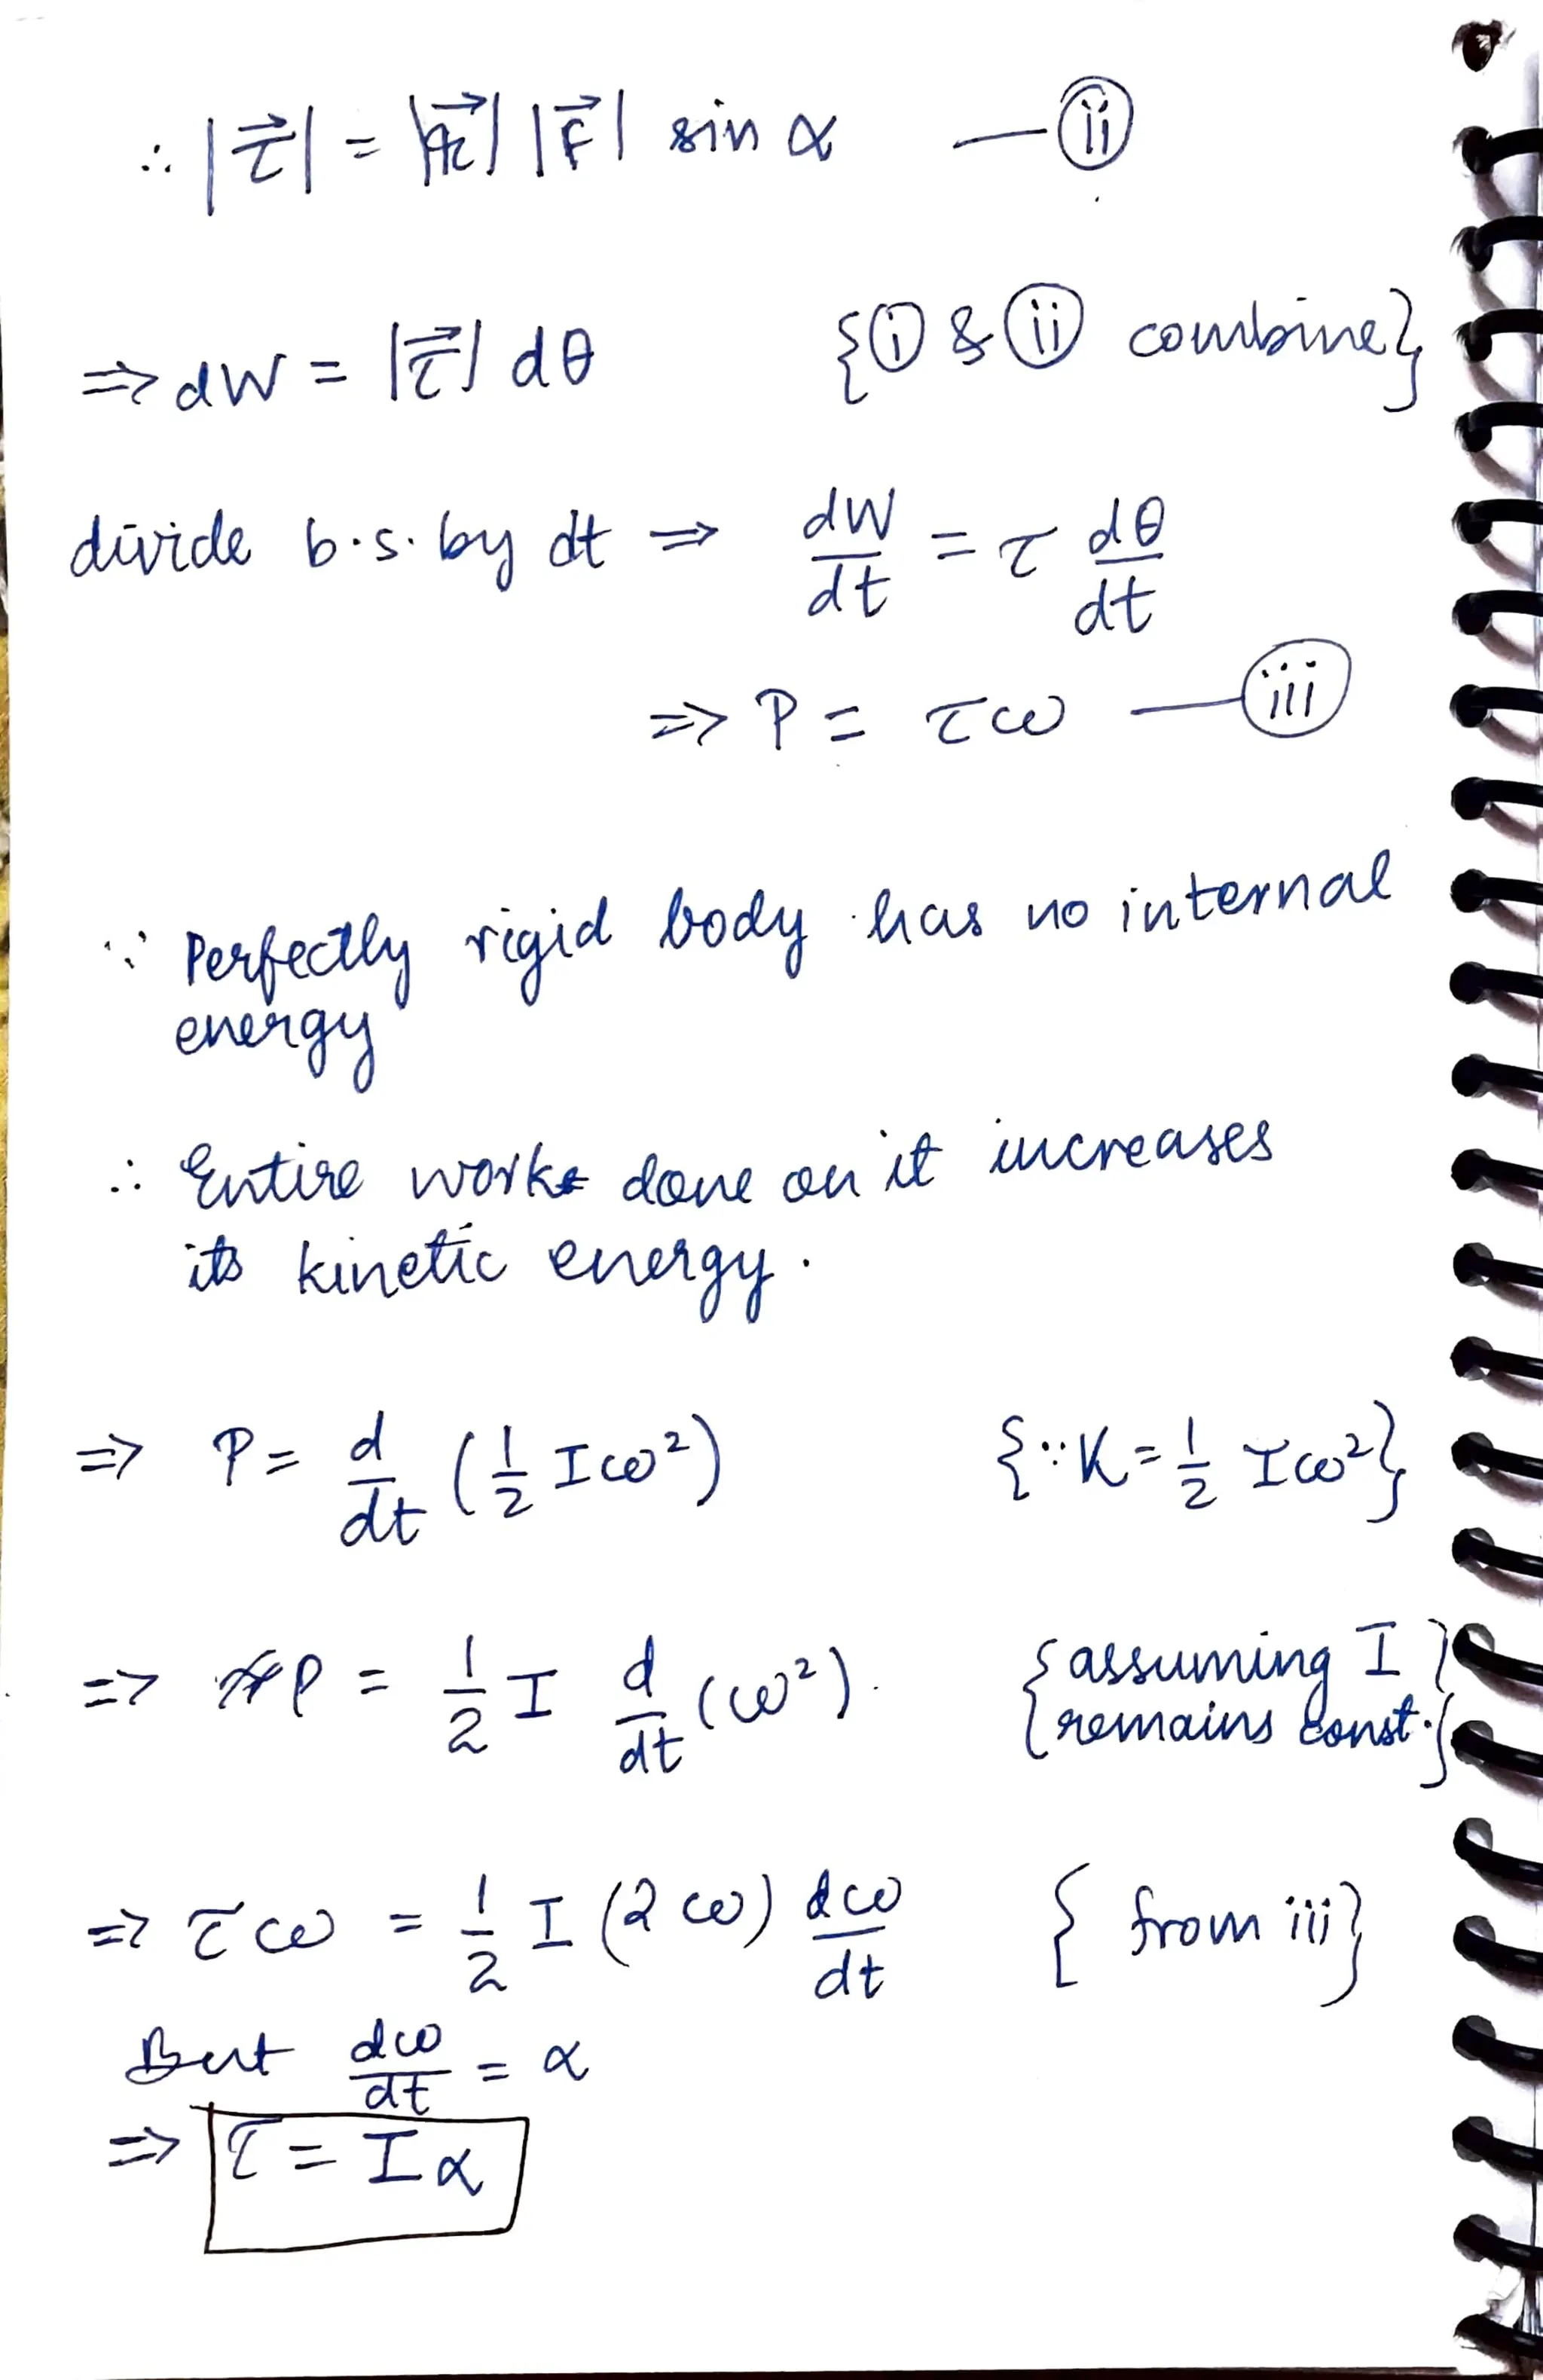 ∴ |τ⃗| = |r⃗| |F⃗| sin α — (ii)
⇒ dW = |τ⃗| dθ {(i) & (ii) combine}
divide b.s. by dt ⇒ dW/dt = τ dθ/dt
⇒ P = τω — (iii)
∵ Perfectly rigid body has no internal
energy
∴ Entire work done on it increases
its kinetic energy.
⇒ P = d/dt (1/2 Iω²) {∵ K = 1/2 Iω²}
⇒ P = 1/2 I d/dt (ω²). {assuming I
remains const.}
⇒ τω = 1/2 I (2ω) dω/dt { from iii}
But dω/dt = α
⇒ τ = Iα